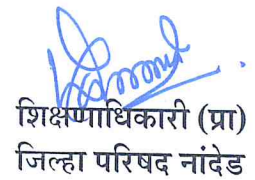 शिक्षणाधिकारी (प्रा)
जिल्हा परिषद नांदेड